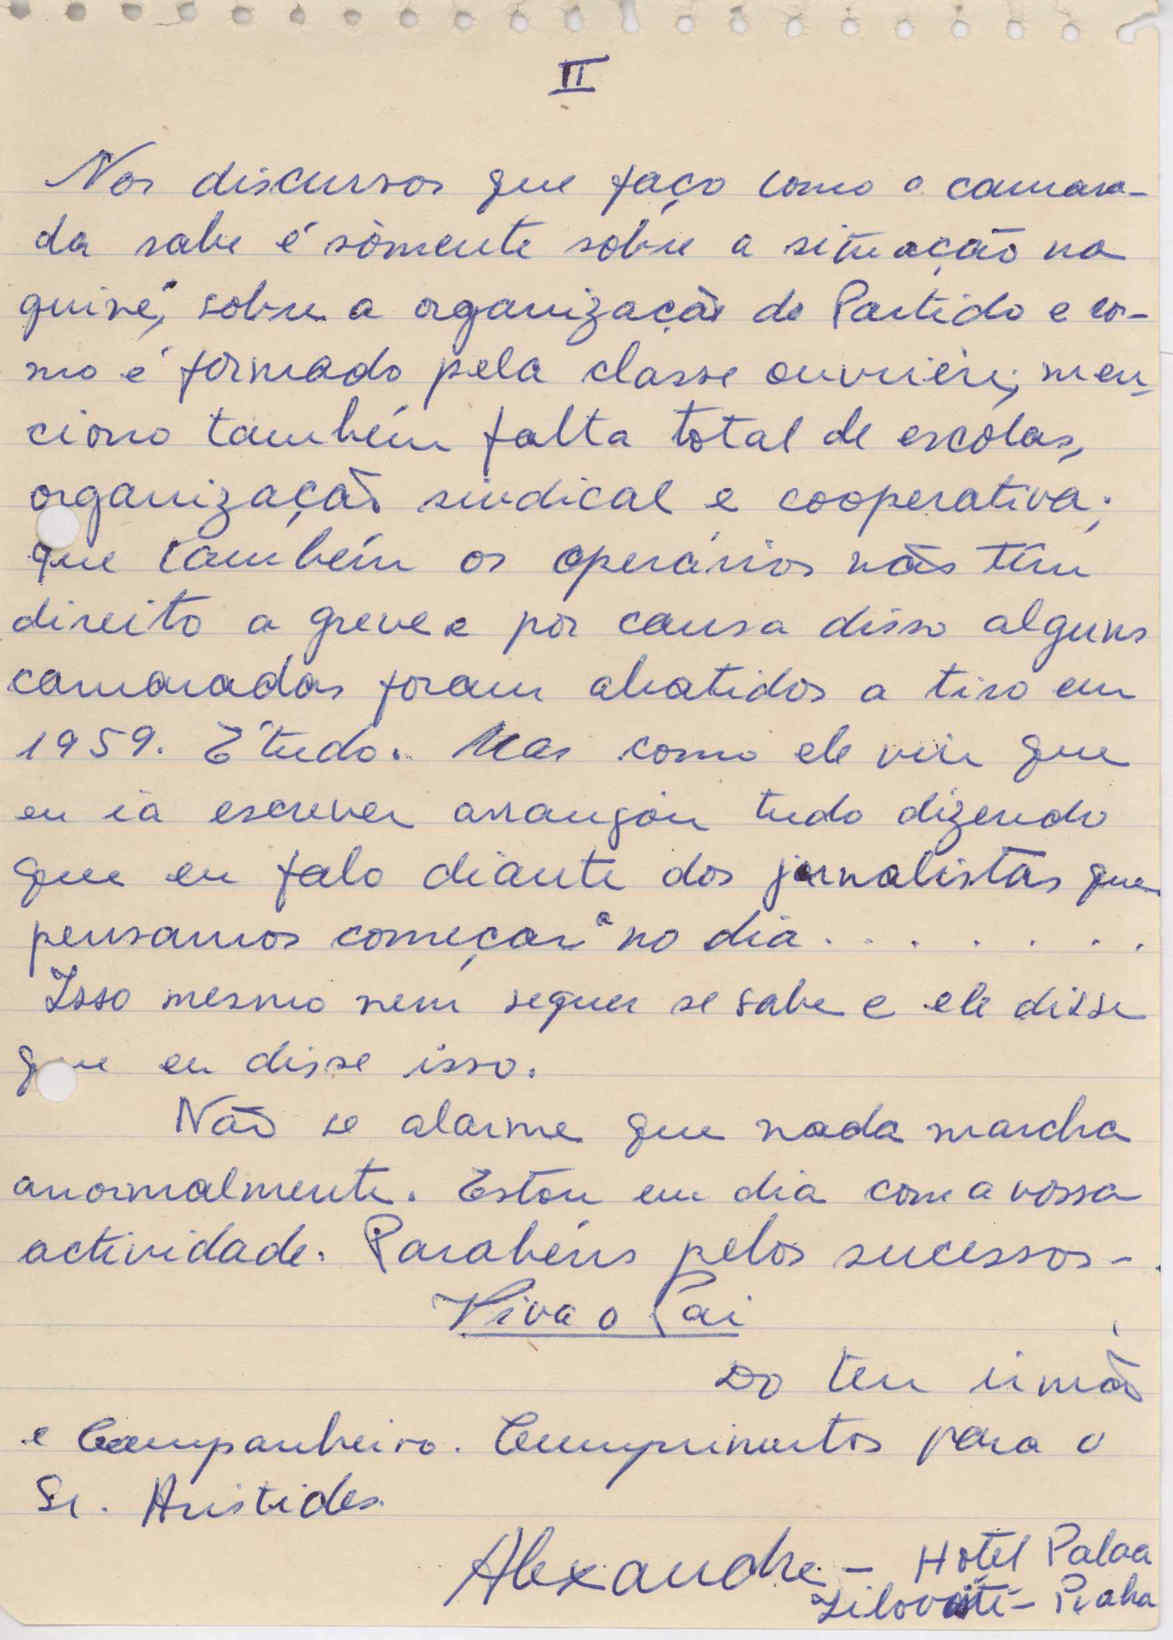 II
Nos discursos que faço como o camara-
da sabe é sòmente sobre a situação na
guiné, sobre a organização do Partido e co-
mo é formado pela classe ouvrière; men-
ciono também falta total de escolas,
organização sindical e cooperativa;
que também os operários não têm
direito a greve e por causa disso alguns
camaradas foram abatidos a tiro em
1959. É tudo. Mas como ele viu que
eu ia escrever arranjou tudo dizendo
que eu falo diante dos jornalistas que
pensamos começar a no dia . . . . . . .
Isso mesmo nem sequer se sabe e ele disse
que eu disse isso.
Não se alarme que nada marcha
anormalmente. Estou em dia com a vossa
actividade. Parabéns pelos sucessos -.
Viva o Pai
Do teu irmão
e Companheiro. Cumprimentos para o
Sr. Aristides.
Alexandre - Hotel Palaa
- Praha